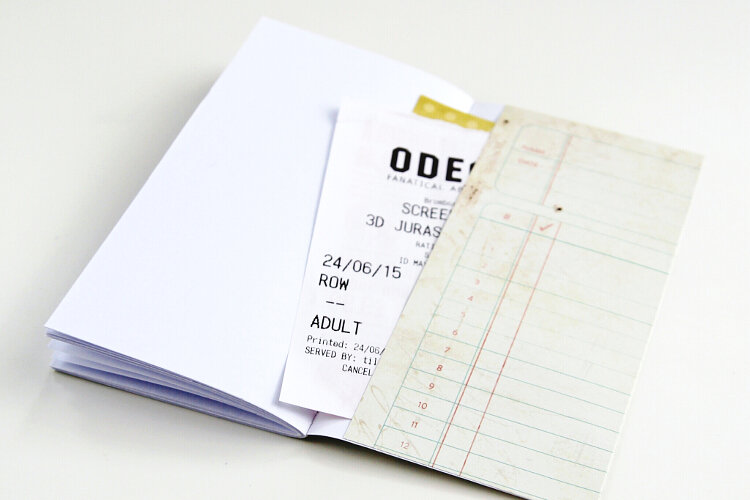 ODEO
FANATICAL A
SCREE
3D JURAS
RATI
ID MA
24/06/15
ROW
--
ADULT
Printed: 24/06/
SERVED BY: til
CANCEL
# ✓
3
4
5
6
7
8
9
10
11
12